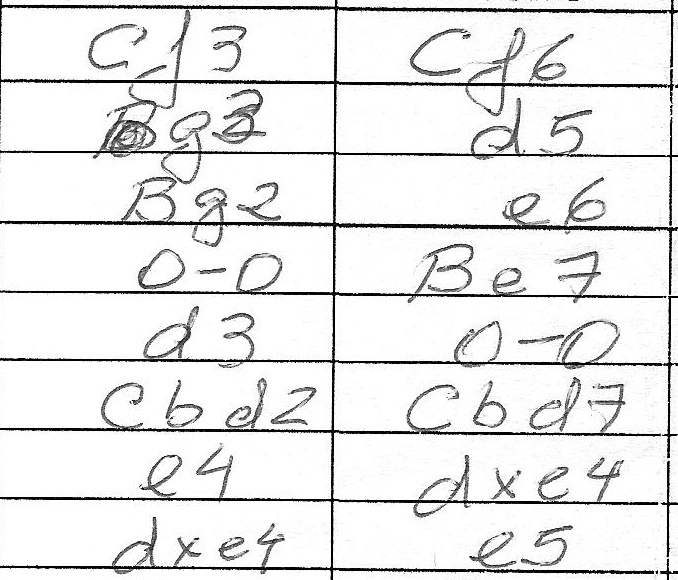 Cf3 Cf6
g3 d5
Bg2 e6
0-0 Be7
d3 0-0
Cbd2 Cbd7
e4 dxe4
dxe4 e5